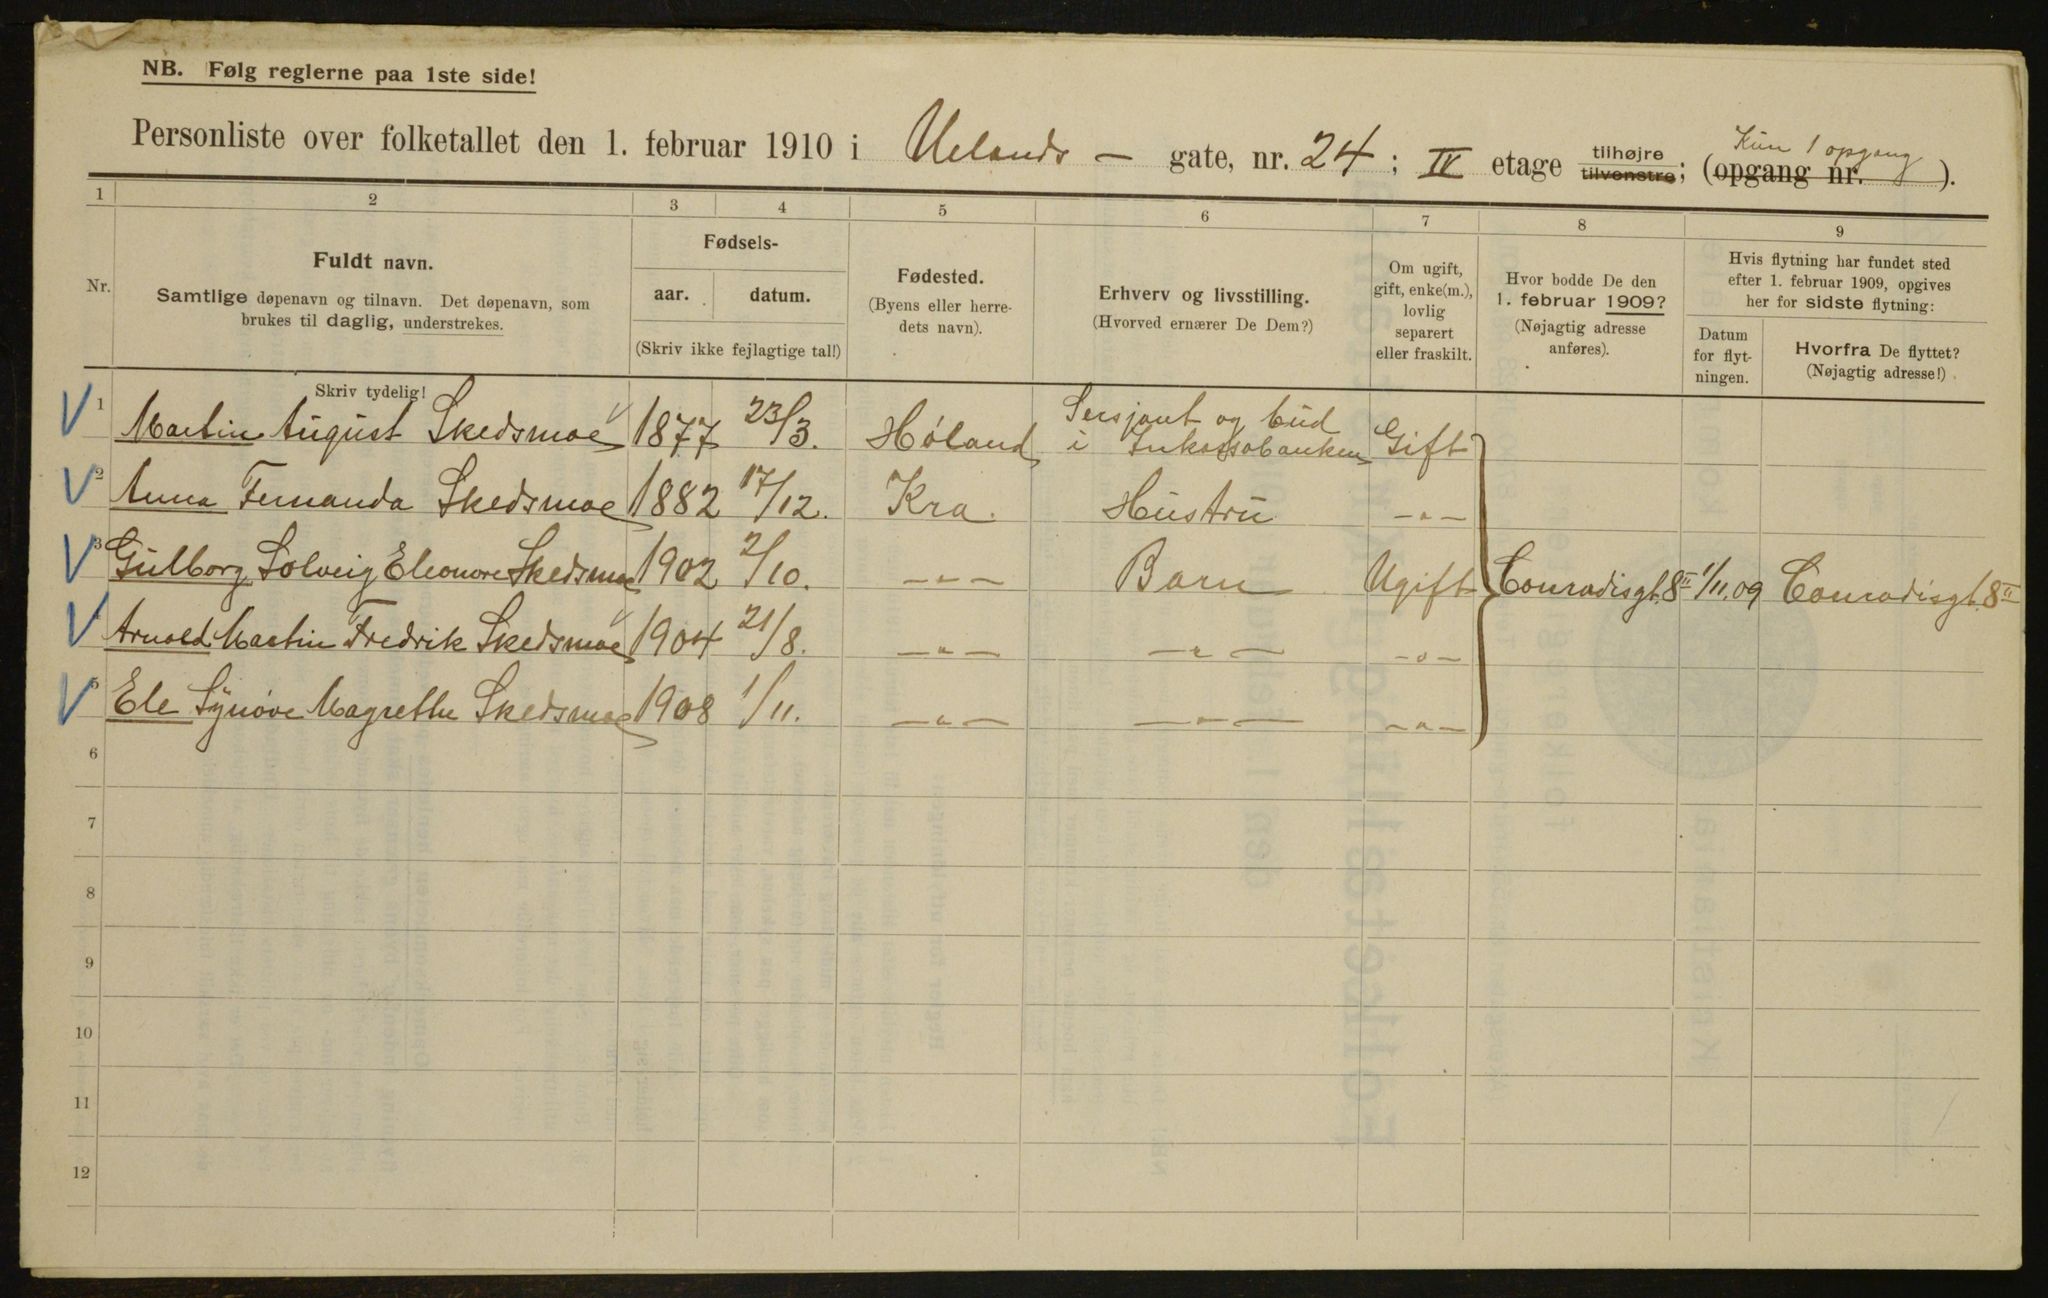 NB. Følg reglerne paa 1ste side!
Personliste over folketallet den 1. februar 1910 i Uelands — gate, nr. 24; IV etage tilhøjre tilvenstre; (opgang nr. Kun 1 opgang).
1 2 3 4 5 6 7 8 9
Nr.
Fuldt navn.
Samtlige døpenavn og tilnavn. Det døpenavn, som
brukes til daglig, understrekes.
Skriv tydelig!
Fødsels-
aar. datum.
(Skriv ikke fejlagtige tal!)
Fødested.
(Byens eller herre-
dets navn).
Erhverv og livsstilling.
(Hvorved ernærer De Dem?)
Om ugift,
gift, enke(m.),
lovlig
separert
eller fraskilt.
Hvor bodde De den
1. februar 1909?
(Nøjagtig adresse
anføres).
Hvis flytning har fundet sted
efter 1. februar 1909, opgives
her for sidste flytning:
Datum
for flyt-
ningen.
Hvorfra De flyttet?
(Nøjagtig adresse!)
1 Martin August Skedsmoe 1877 23/3. Høland Sersjant og bud i Inkassobanken Gift
2 Anna Fernanda Skedsmoe 1882 17/12. Kra. Hustru —"—
3 Gulborg Solveig Eleonore Skedsmoe 1902 2/10. —"— Barn Ugift Conradisgt. 8 II 1/11.09 Conradisgt. 8 II
4 Arnold Martin Fredrik Skedsmoe 1904 21/8. —"— —"— —"—
5 Ele Synøve Magrethe Skedsmoe 1908 1/11. —"— —"— —"—
6
7
8
9
10
11
12